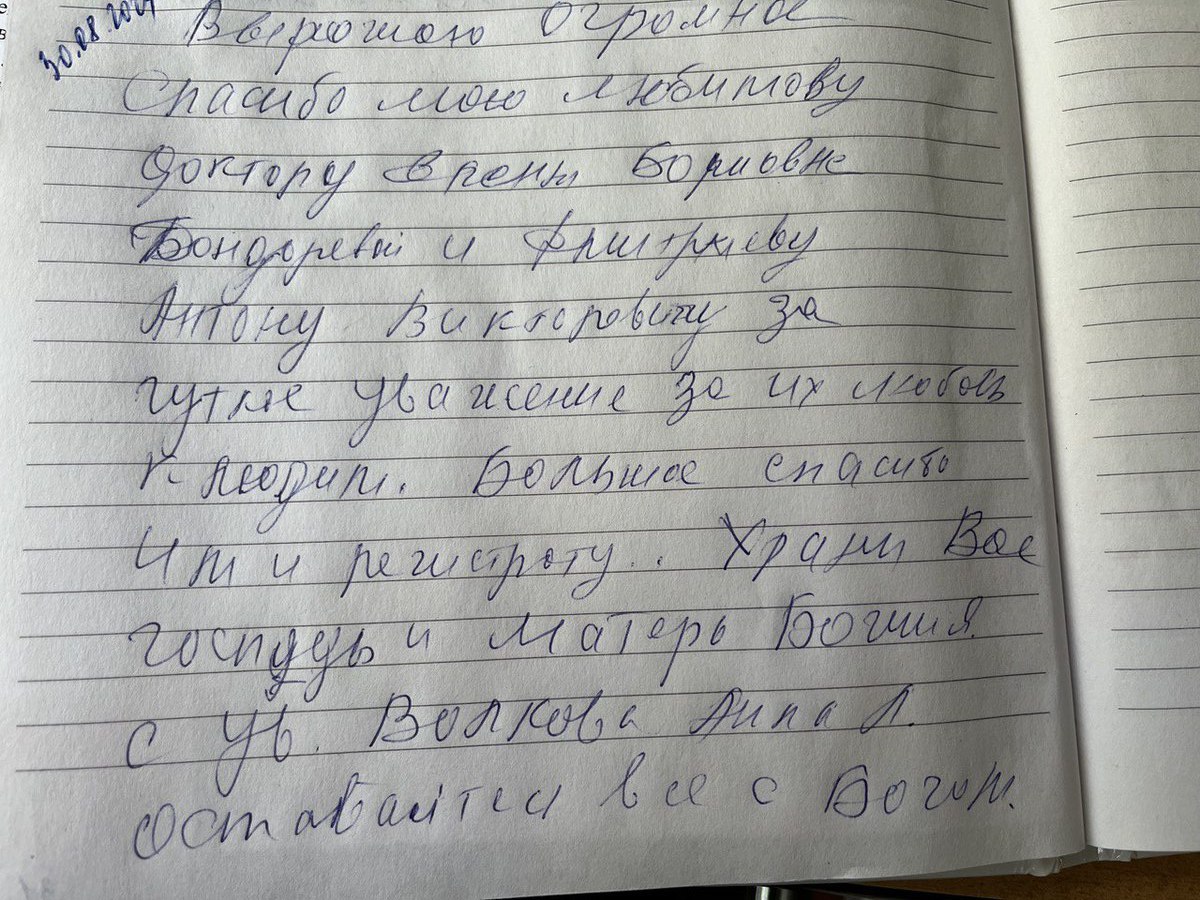 30.08.202
Ввержаюю огромное
Спасибо мою любимову
доктору Борисовне
Бондоревой и Дмитриеву
Антону Викторовичу за
чуткое уважение за их любовь
к людим. Большое спасибо
им и регистроту.. Храни Вас
господь и Матерь Божия.
с Ув. Волкова Анна Л.
Оставайтесь все с Богом.